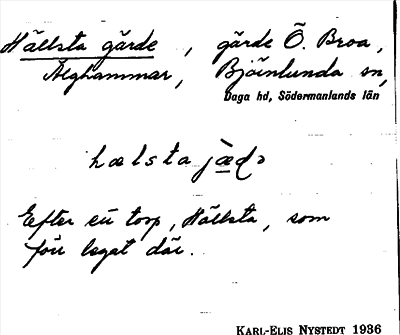 Hällsta gärde, gärde Ö. Broa,
Älghammar, Björnlunda sn,
Daga hd, Södermanlands län
hælsta jæ̀də
Efter ett torp, Hällsta, som
förr legat där.
KARL-ELIS NYSTEDT 1936